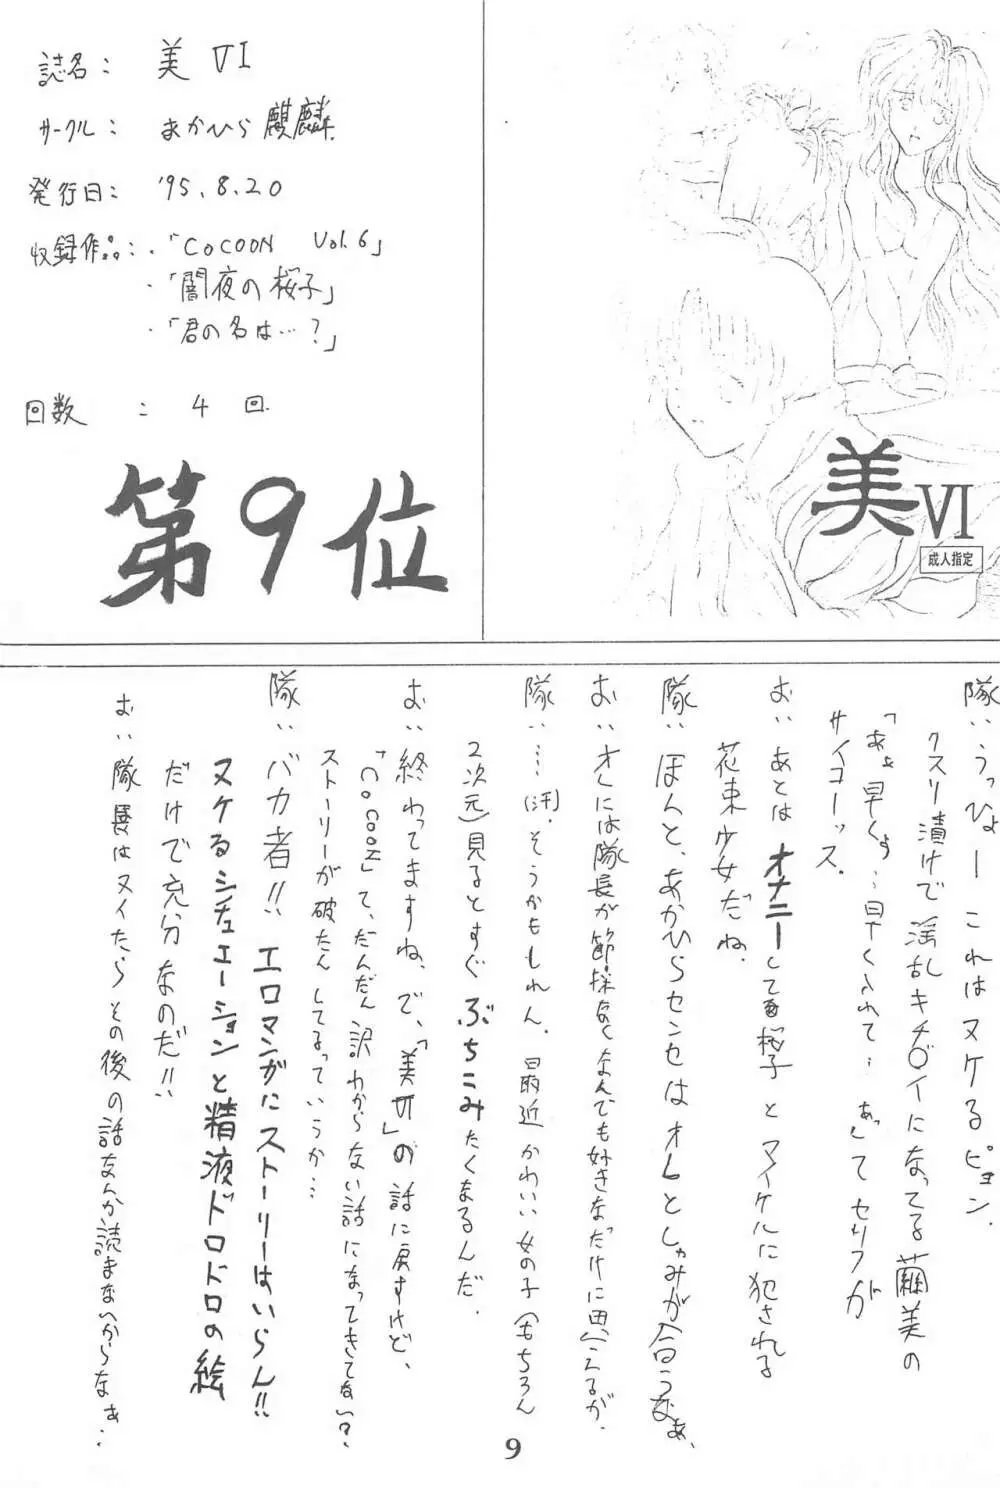 誌名： 美 VI
サークル： あかひら麒麟
発行日： '95.8.20
収録作品：・「COCOON Vol.6」
・「闇夜の桜子」
・「君の名は…？」
回数 ： 4 回
第9位
美VI
成人指定
隊：うっひょー これはヌケるピョン.
クスリ漬けで淫乱キチ○イになってる繭美の
「あぁ早くぅ…早く入れて… あっ」てセリフが
サイコーッス.
お：あとはオナニーしてる桜子とマイケルに犯される
花束少女だね.
隊：ほんと、あかひらセンセはオレとしゅみが合うなぁ、
お：オレには隊長が節操なくなんでも好きなだけに思えるが.
隊：…(汗). そうかもしれん. 最近かわいい女の子(もちろん
2次元)見るとすぐぶちこみたくなるんだ.
お：終わってますね、で、「美VI」の話に戻すけど、
「COCOON」て、だんだん訳わからない話になってきてない？
ストーリーが破たんしてるっていうか…
隊：バカ者!! エロマンガにストーリーはいらん!!
ヌケるシチュエーションと精液ドロドロの絵
だけで充分なのだ!!
お：隊長はヌイたらその後の話なんか読まないからなぁ..
9